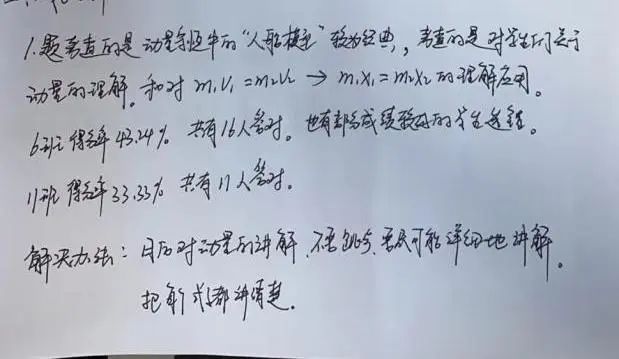 1.题考查的是动量守恒中的“人船模型”较为经典,考查的是对学生们关于
动量的理解。和对 m₁V₁=m₂V₂ → m₁x₁=m₂x₂ 的理解应用。
6班 得分率 43.24% 共有16人答对。也有部分成绩较好的学生选错。
11班 得分率 33.33% 共有11人答对。
解决办法:日后对动量的讲解、不要跳步、要尽可能详细地讲解。
把每个式子都讲清楚.